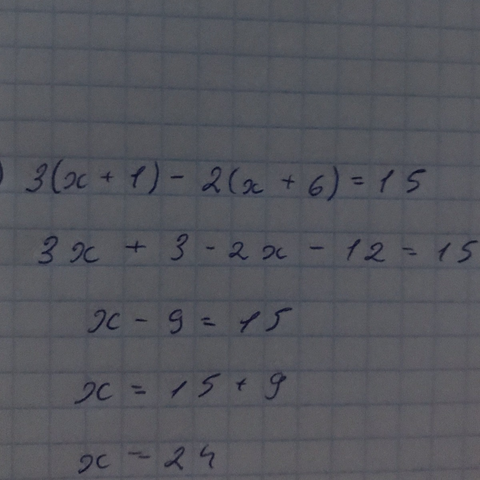 ) 3(x + 1) - 2(x + 6) = 15
3x + 3 - 2x - 12 = 15
x - 9 = 15
x = 15 + 9
x = 24